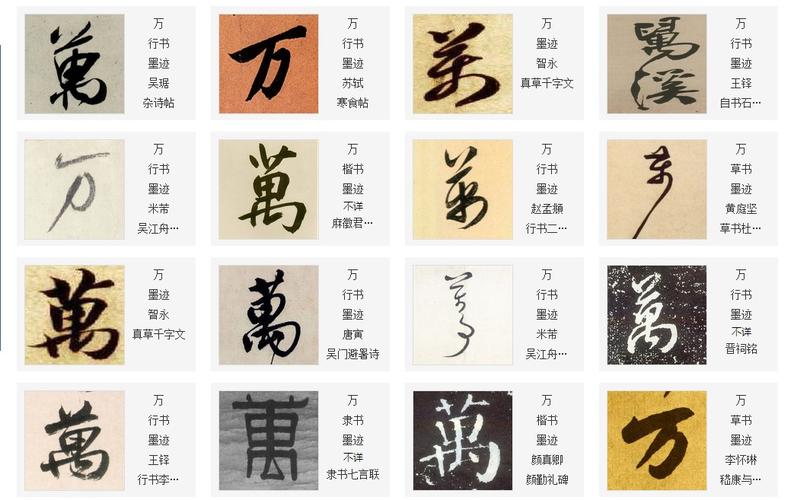 萬
万
行书
墨迹
吴琚
杂诗帖
万
万
行书
墨迹
苏轼
寒食帖
万
万
墨迹
智永
真草千字文
萬溪
万
行书
墨迹
王铎
自书石…
万
万
行书
墨迹
米芾
吴江舟…
萬
万
楷书
墨迹
不详
麻徵君…
万
万
行书
墨迹
赵孟頫
行书二…
万
万
草书
墨迹
黄庭坚
草书杜…
萬
万
墨迹
智永
真草千字文
萬
万
行书
墨迹
唐寅
吴门避暑诗
万
万
行书
墨迹
米芾
吴江舟…
萬
万
行书
墨迹
不详
晋祠铭
萬
万
行书
墨迹
王铎
行书李…
萬
万
隶书
墨迹
不详
隶书七言联
萬
万
楷书
墨迹
颜真卿
颜勤礼碑
万
万
草书
墨迹
李怀琳
嵇康与…